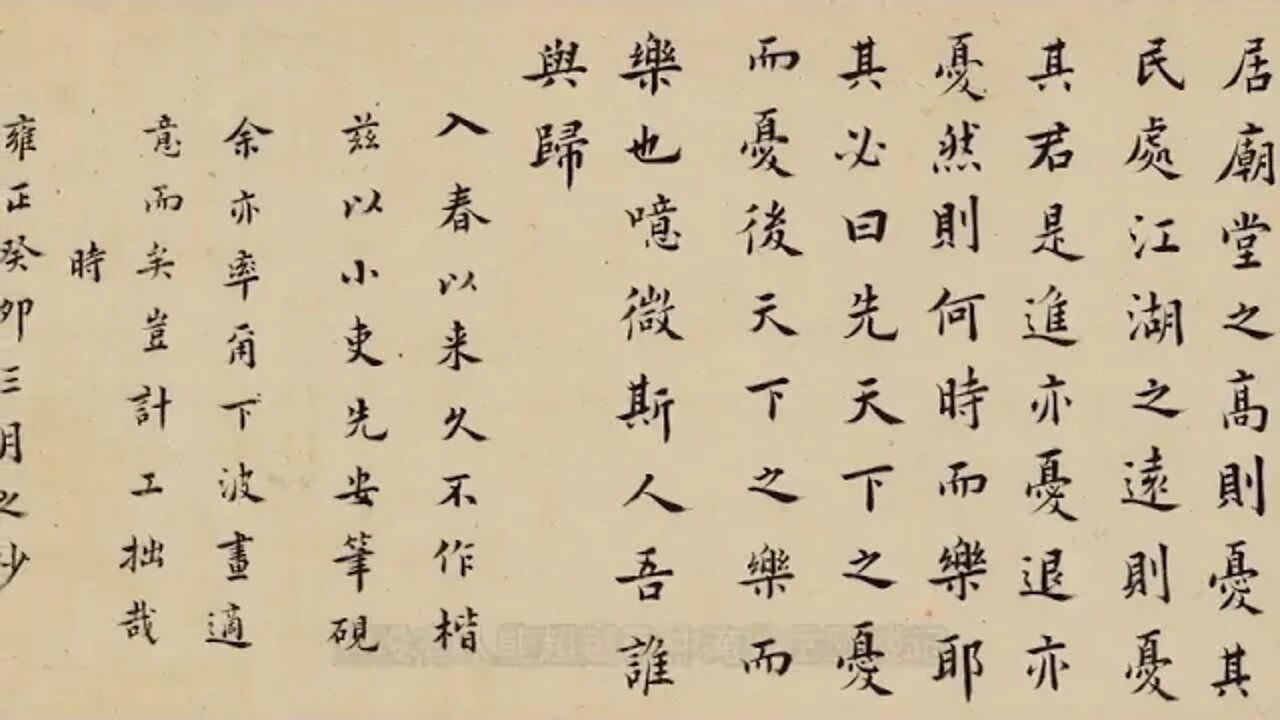 居廟堂之高則憂其
民處江湖之遠則憂
其君是進亦憂退亦
憂然則何時而樂耶
其必曰先天下之憂
而憂後天下之樂而
樂也噫微斯人吾誰
與歸
入春以来久不作楷
茲以小吏先安筆硯
余亦率爾下波畫適
意而矣豈計工拙哉
時
雍正癸卯三月之抄